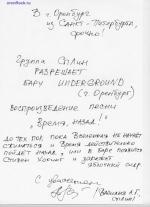 В г. Оренбург
из Санкт-Петербурга,
срочно!
Группа СПЛИН
РАЗРЕШАЕТ
БАРУ UNDERGROUND
(г. Оренбург)
ВОСПРОИЗВЕДЕНИЕ ПЕСНИ
"Время, назад!"
до тех пор, пока Вселенная не начнёт
сжиматься и Время действительно
пойдёт назад, или в баре появится
Стивен Хокинг и закажет
яблочный сидр.
С уважением,